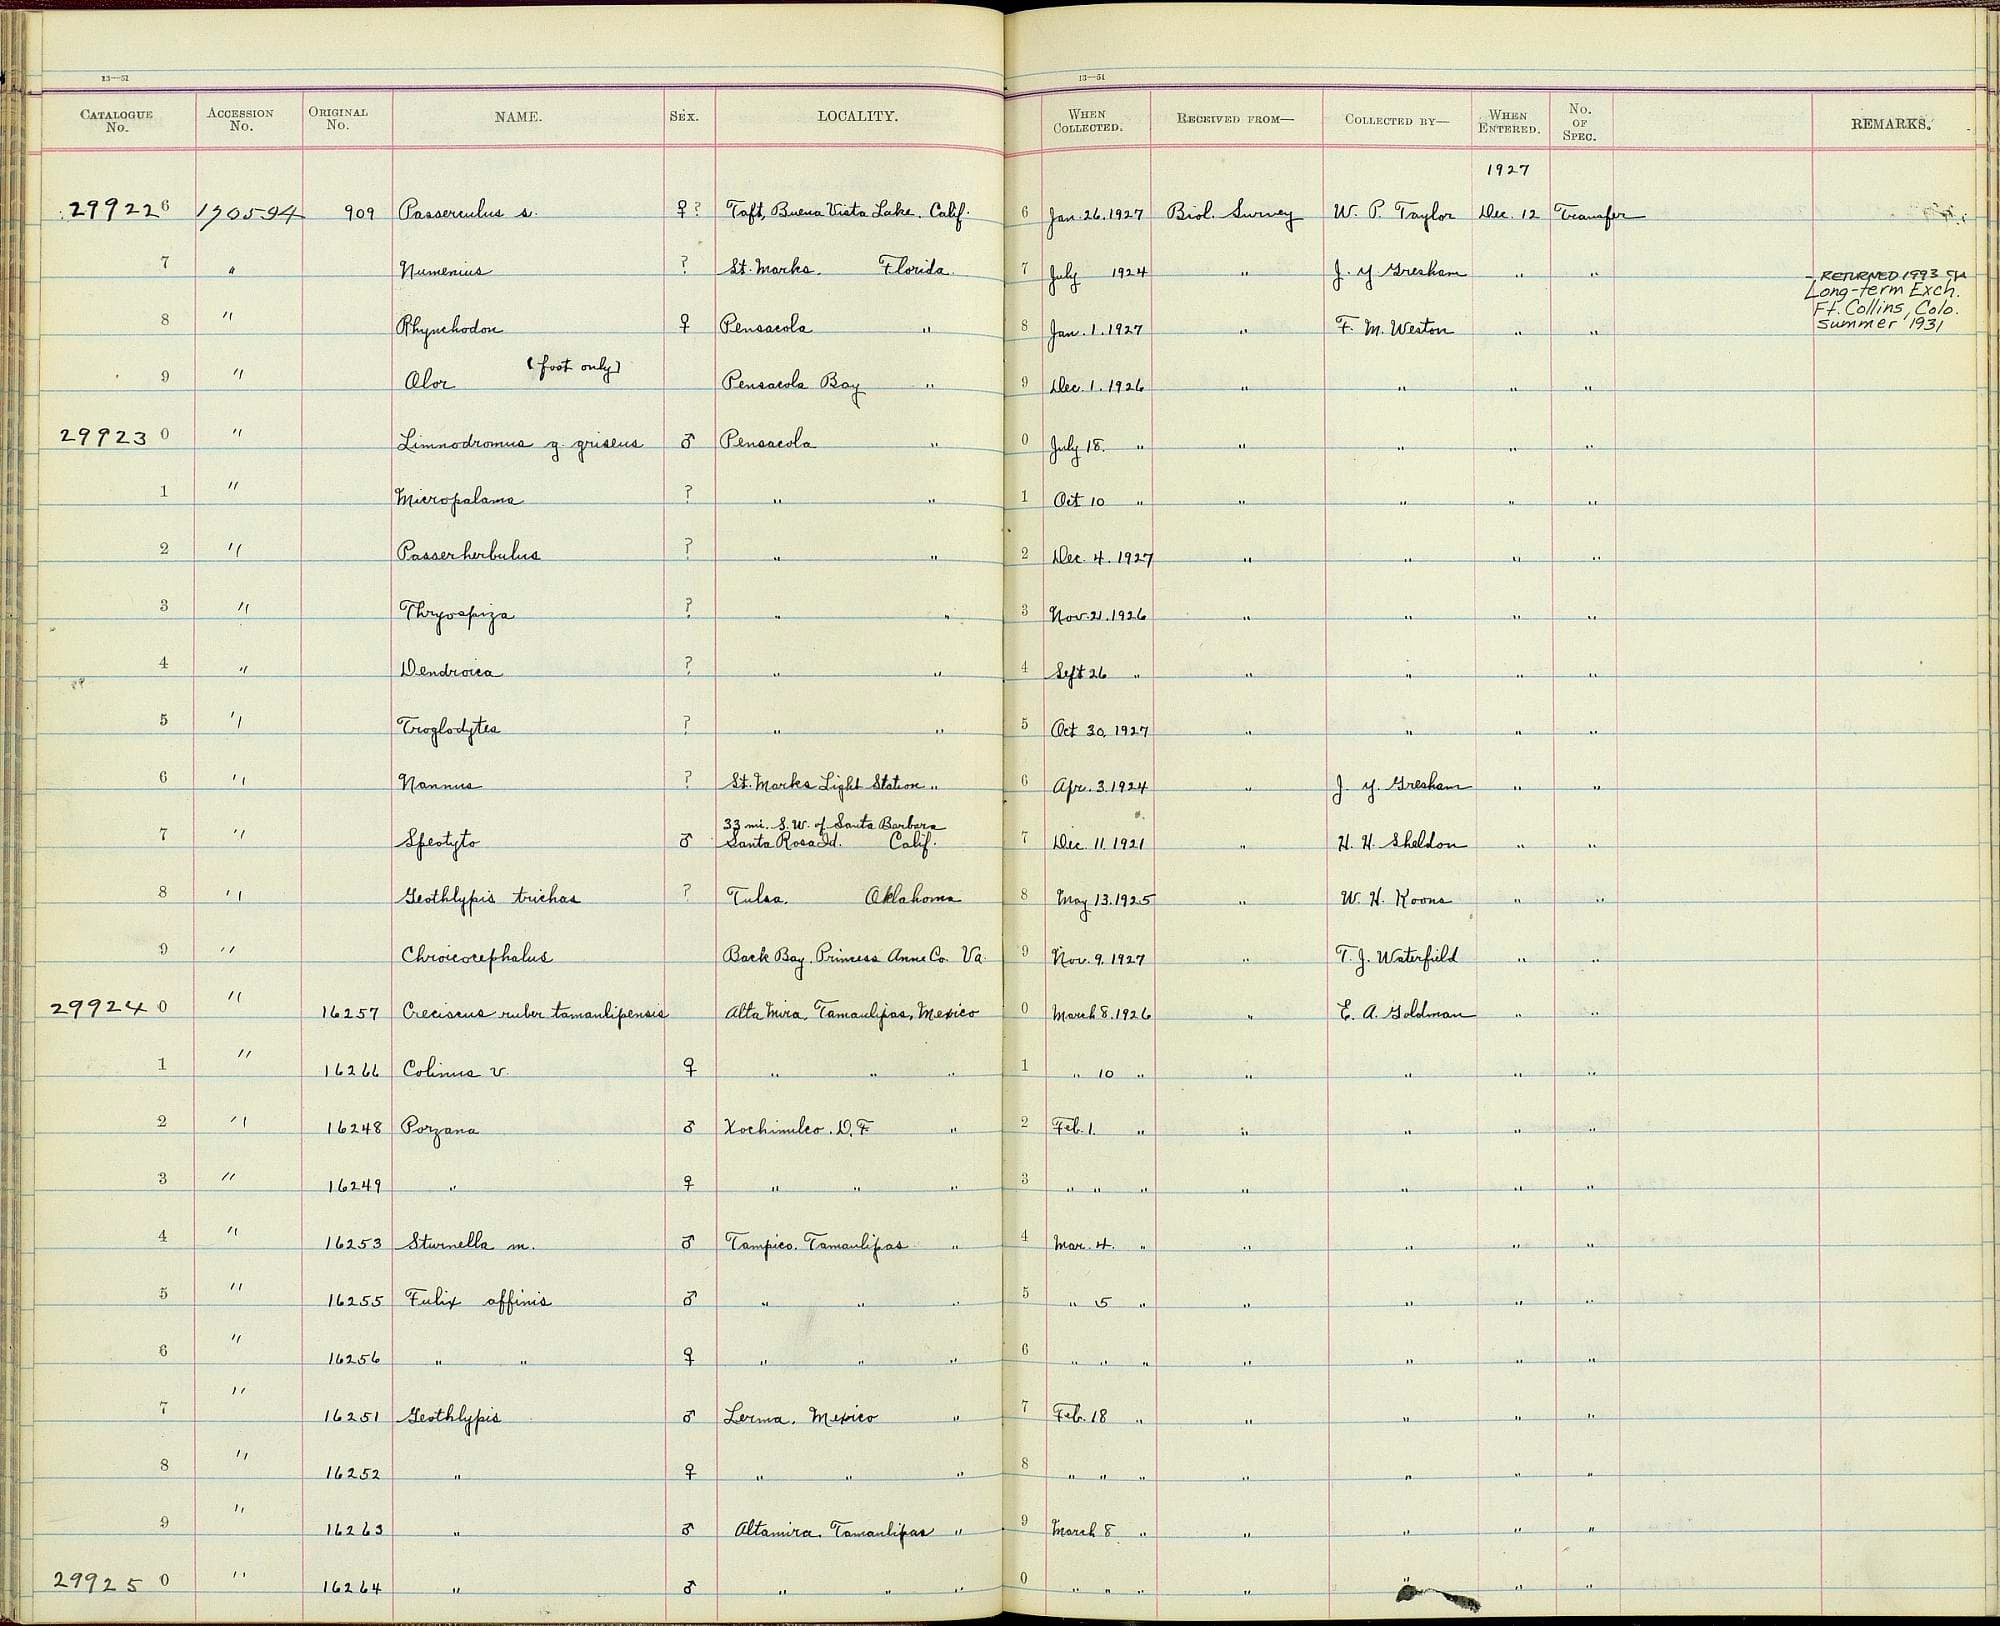 13—51 13—51
CATALOGUE No. ACCESSION No. ORIGINAL No. NAME. SEX. LOCALITY. WHEN COLLECTED. RECEIVED FROM— COLLECTED BY— WHEN ENTERED. No. OF SPEC. REMARKS.
1927
29922 6 170594 909 Passerculus s. ♀? Taft, Buena Vista Lake. Calif. 6 Jan. 26. 1927 Biol. Survey W. P. Taylor Dec. 12 Transfer
7 " Numenius ? St. Marks. Florida. 7 July 1924 " J. Y Gresham " "
- RETURNED 1993
Long-term Exch.
Ft. Collins, Colo.
summer 1931
8 " Rhynchodon ♀ Pensacola " 8 Jan. 1. 1927 " F. M. Weston " "
9 " Olor (foot only) Pensacola Bay " 9 Dec. 1. 1926 " " " "
29923 0 " Limnodromus g. griseus ♂ Pensacola " 0 July 18. " " " " "
1 " Micropalama ? " " 1 Oct 10 " " " " "
2 " Passerherbulus ? " " 2 Dec. 4. 1927 " " " "
3 " Thryospiza ? " " 3 Nov. 21. 1926 " " " "
4 " Dendroica ? " " 4 Sept 26 " " " " "
5 " Troglodytes ? " " 5 Oct 30, 1927 " " " "
6 " Nannus ? St. Marks Light Station " 6 Apr. 3. 1924 " J. Y. Gresham " "
33 mi. S. W. of Santa Barbara
7 " Speotyto ♂ Santa Rosa Id. Calif. 7 Dec. 11. 1921 " H. H. Sheldon " "
8 " Geothlypis trichas ? Tulsa. Oklahoma 8 May 13. 1925 " W. H. Koons " "
9 " Chroicocephalus Back Bay. Princess Anne Co. Va. 9 Nov. 9. 1927 " T. J. Waterfield " "
29924 0 " 16257 Creciscus ruber tamaulipensis Alta Mira. Tamaulipas, Mexico 0 March 8. 1926 " E. A. Goldman " "
1 " 16266 Colinus v. ♀ " " " 1 " 10 " " " " "
2 " 16248 Porzana ♂ Xochimilco. D. F. " 2 Feb. 1. " " " " "
3 " 16249 " ♀ " " " 3 " " " " " " "
4 " 16253 Sturnella m. ♂ Tampico. Tamaulipas " 4 Mar. 4. " " " " "
5 " 16255 Fulix affinis ♂ " " " 5 " 5 " " " " "
6 " 16256 " " ♀ " " " 6 " " " " " " "
7 " 16251 Geothlypis ♂ Lerma. Mexico " 7 Feb. 18 " " " " "
8 " 16252 " ♀ " " " 8 " " " " " " "
9 " 16263 " ♂ Altamira. Tamaulipas " 9 March 8 " " " " "
29925 0 " 16264 " ♂ " " " 0 " " " " " " "